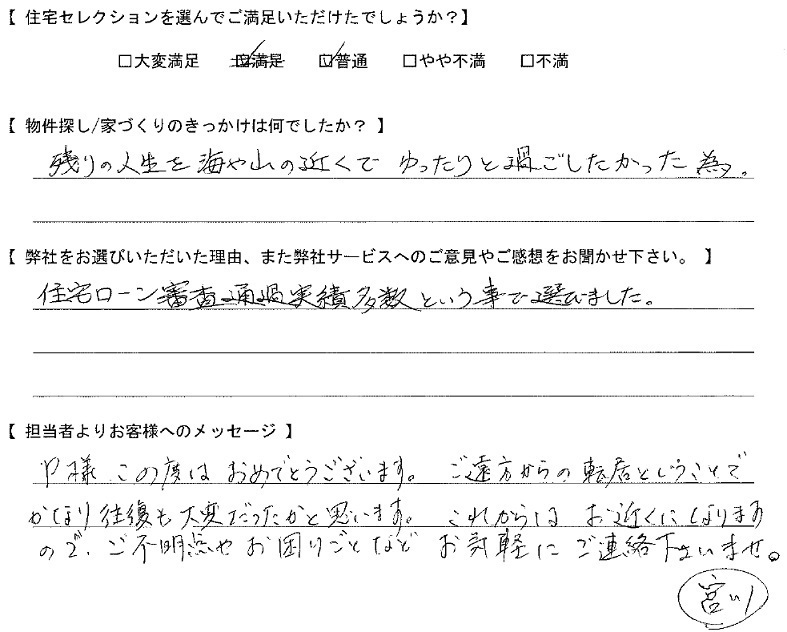 【 住宅セレクションを選んでご満足いただけたでしょうか?】
□大変満足 □満足 □普通 □やや不満 □不満
【 物件探し/家づくりのきっかけは何でしたか? 】
残りの人生を海や山の近くで ゆったりと過ごしたかった為。
【 弊社をお選びいただいた理由、また弊社サービスへのご意見やご感想をお聞かせ下さい。 】
住宅ローン審査通過実績多数という事で選びました。
【 担当者よりお客様へのメッセージ 】
様 この度は おめでとうございます。 ご遠方からの転居ということで
かなり往復も大変だったかと思います。 これからは お近くになります
ので、ご不明点や お困りごとなど お気軽に ご連絡下さいませ。
宮川